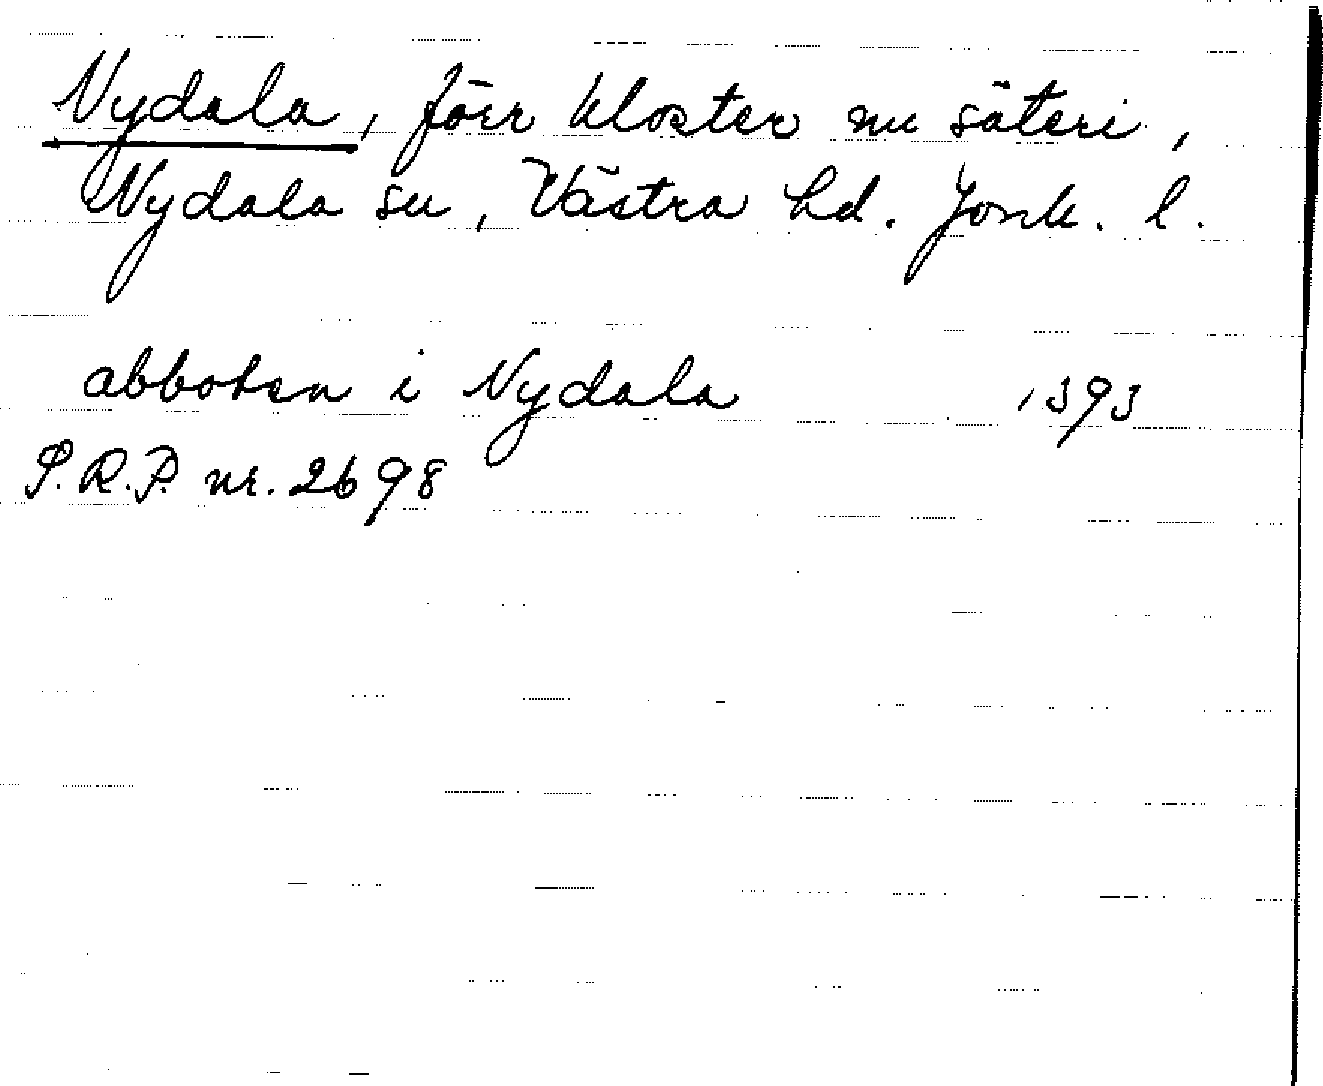 Nydala, förr kloster nu säteri,
Nydala sn, Västra hd. Jönk. l.
abboten i Nydala 1393
S.R.P. nr. 2698